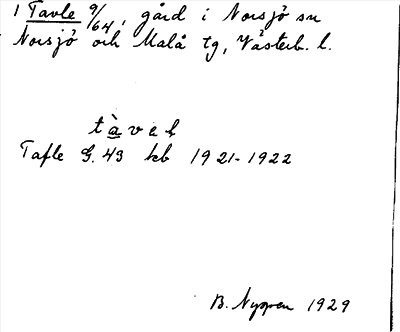 1 Tavle 9/64, gård i Norsjö sn
Norsjö och Malå tg, Västerb. l.
tàvel
Tafle G. 43 kb 1921-1922
B. Nyman 1929